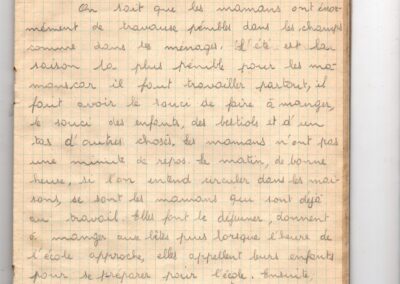 On sait que les mamans ont énor-
mément de travaux pénibles dans les champs
comme dans les ménages. L'été est la
saison la plus pénible pour les ma-
mans, car il faut travailler partout, il
faut avoir le souci de faire à manger,
le souci des enfants, des bestiols et d'un
tas d'autres choses. Les mamans n'ont pas
une minute de repos. Le matin, de bonne
heure, si l'on entend circuler dans les mai-
sons, se sont les mamans qui sont déjà
au travail. Elles font le déjeuner, donnent
à manger aux bêtes puis lorsque l'heure de
l'école approche, elles appellent leurs enfants
pour se préparer pour l'école. Ensuite,